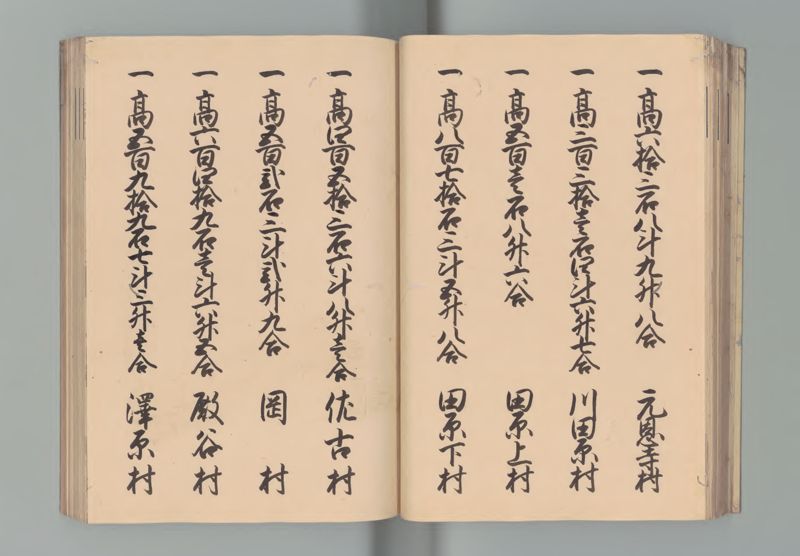 一 高六拾三石八斗九升八合 元恩寺村
一 高三百三拾壱石四斗六升七合 川田原村
一 高五百壱石八升六合 田原上村
一 高八百七拾石三斗五升八合 田原下村
一 高四百五拾三石六斗八升壱合 佐古村
一 高五百弐石三斗弐升九合 岡村
一 高六百四拾九石壱斗六升五合 殿谷村
一 高五百九拾九石七斗三升壱合 澤原村